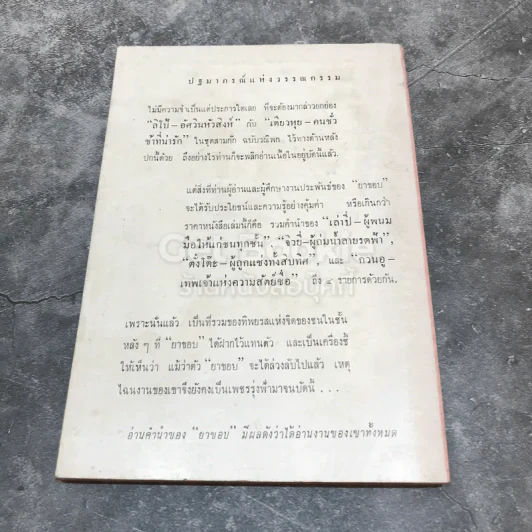 ปฐมาภรณ์แห่งวรรณกรรม
ไม่มีความจำเป็นแต่ประการใดเลย ที่จะต้องมากล่าวยกย่อง
"ลิโป้ – อัศวินหัวสิงห์" กับ "เตียวหุย – คนชั่ว
ช้าที่น่ารัก" ในชุดสามก๊ก ฉบับวณิพก ไว้ทางด้านหลัง
ปกนี้ด้วย ถึงอย่างไรท่านก็จะพลิกอ่านเนื้อในอยู่บัดนี้แล้ว.
แต่สิ่งที่ท่านผู้อ่านและผู้ศึกษางานประพันธ์ของ "ยาขอบ"
จะได้รับประโยชน์และความรู้อย่างคุ้มค่า หรือเกินกว่า
ราคาหนังสือเล่มนี้ก็คือ รวมคำนำของ "เล่าปี่ – ผู้พนม
มือให้แก่ชนทุกชั้น" "จิวยี่ – ผู้ถ่มน้ำลายรดฟ้า",
"ตั๋งโต๊ะ – ผู้ถูกแช่งทั้งสิบทิศ", และ "กวนอู –
เทพเจ้าแห่งความสัตย์ซื่อ" ถึง ๔ รายการด้วยกัน.
เพราะนั่นแล้ว เป็นที่รวมของทิพยรสแห่งชีวิตของชนในชั้น
หลัง ๆ ที่ "ยาขอบ" ได้ฝากไว้แทนตัว และเป็นเครื่องชี้
ให้เห็นว่า แม้ว่าตัว "ยาขอบ" จะได้ล่วงลับไปแล้ว เหตุ
ไฉนงานของเขาจึงยังคงเป็นเพชรรุ่งฟ้ามาจนบัดนี้ . . .
อ่านคำนำของ "ยาขอบ" มีผลดังว่าได้อ่านงานของเขาทั้งหมด
ร้านหนังสือบุ๊คกี้